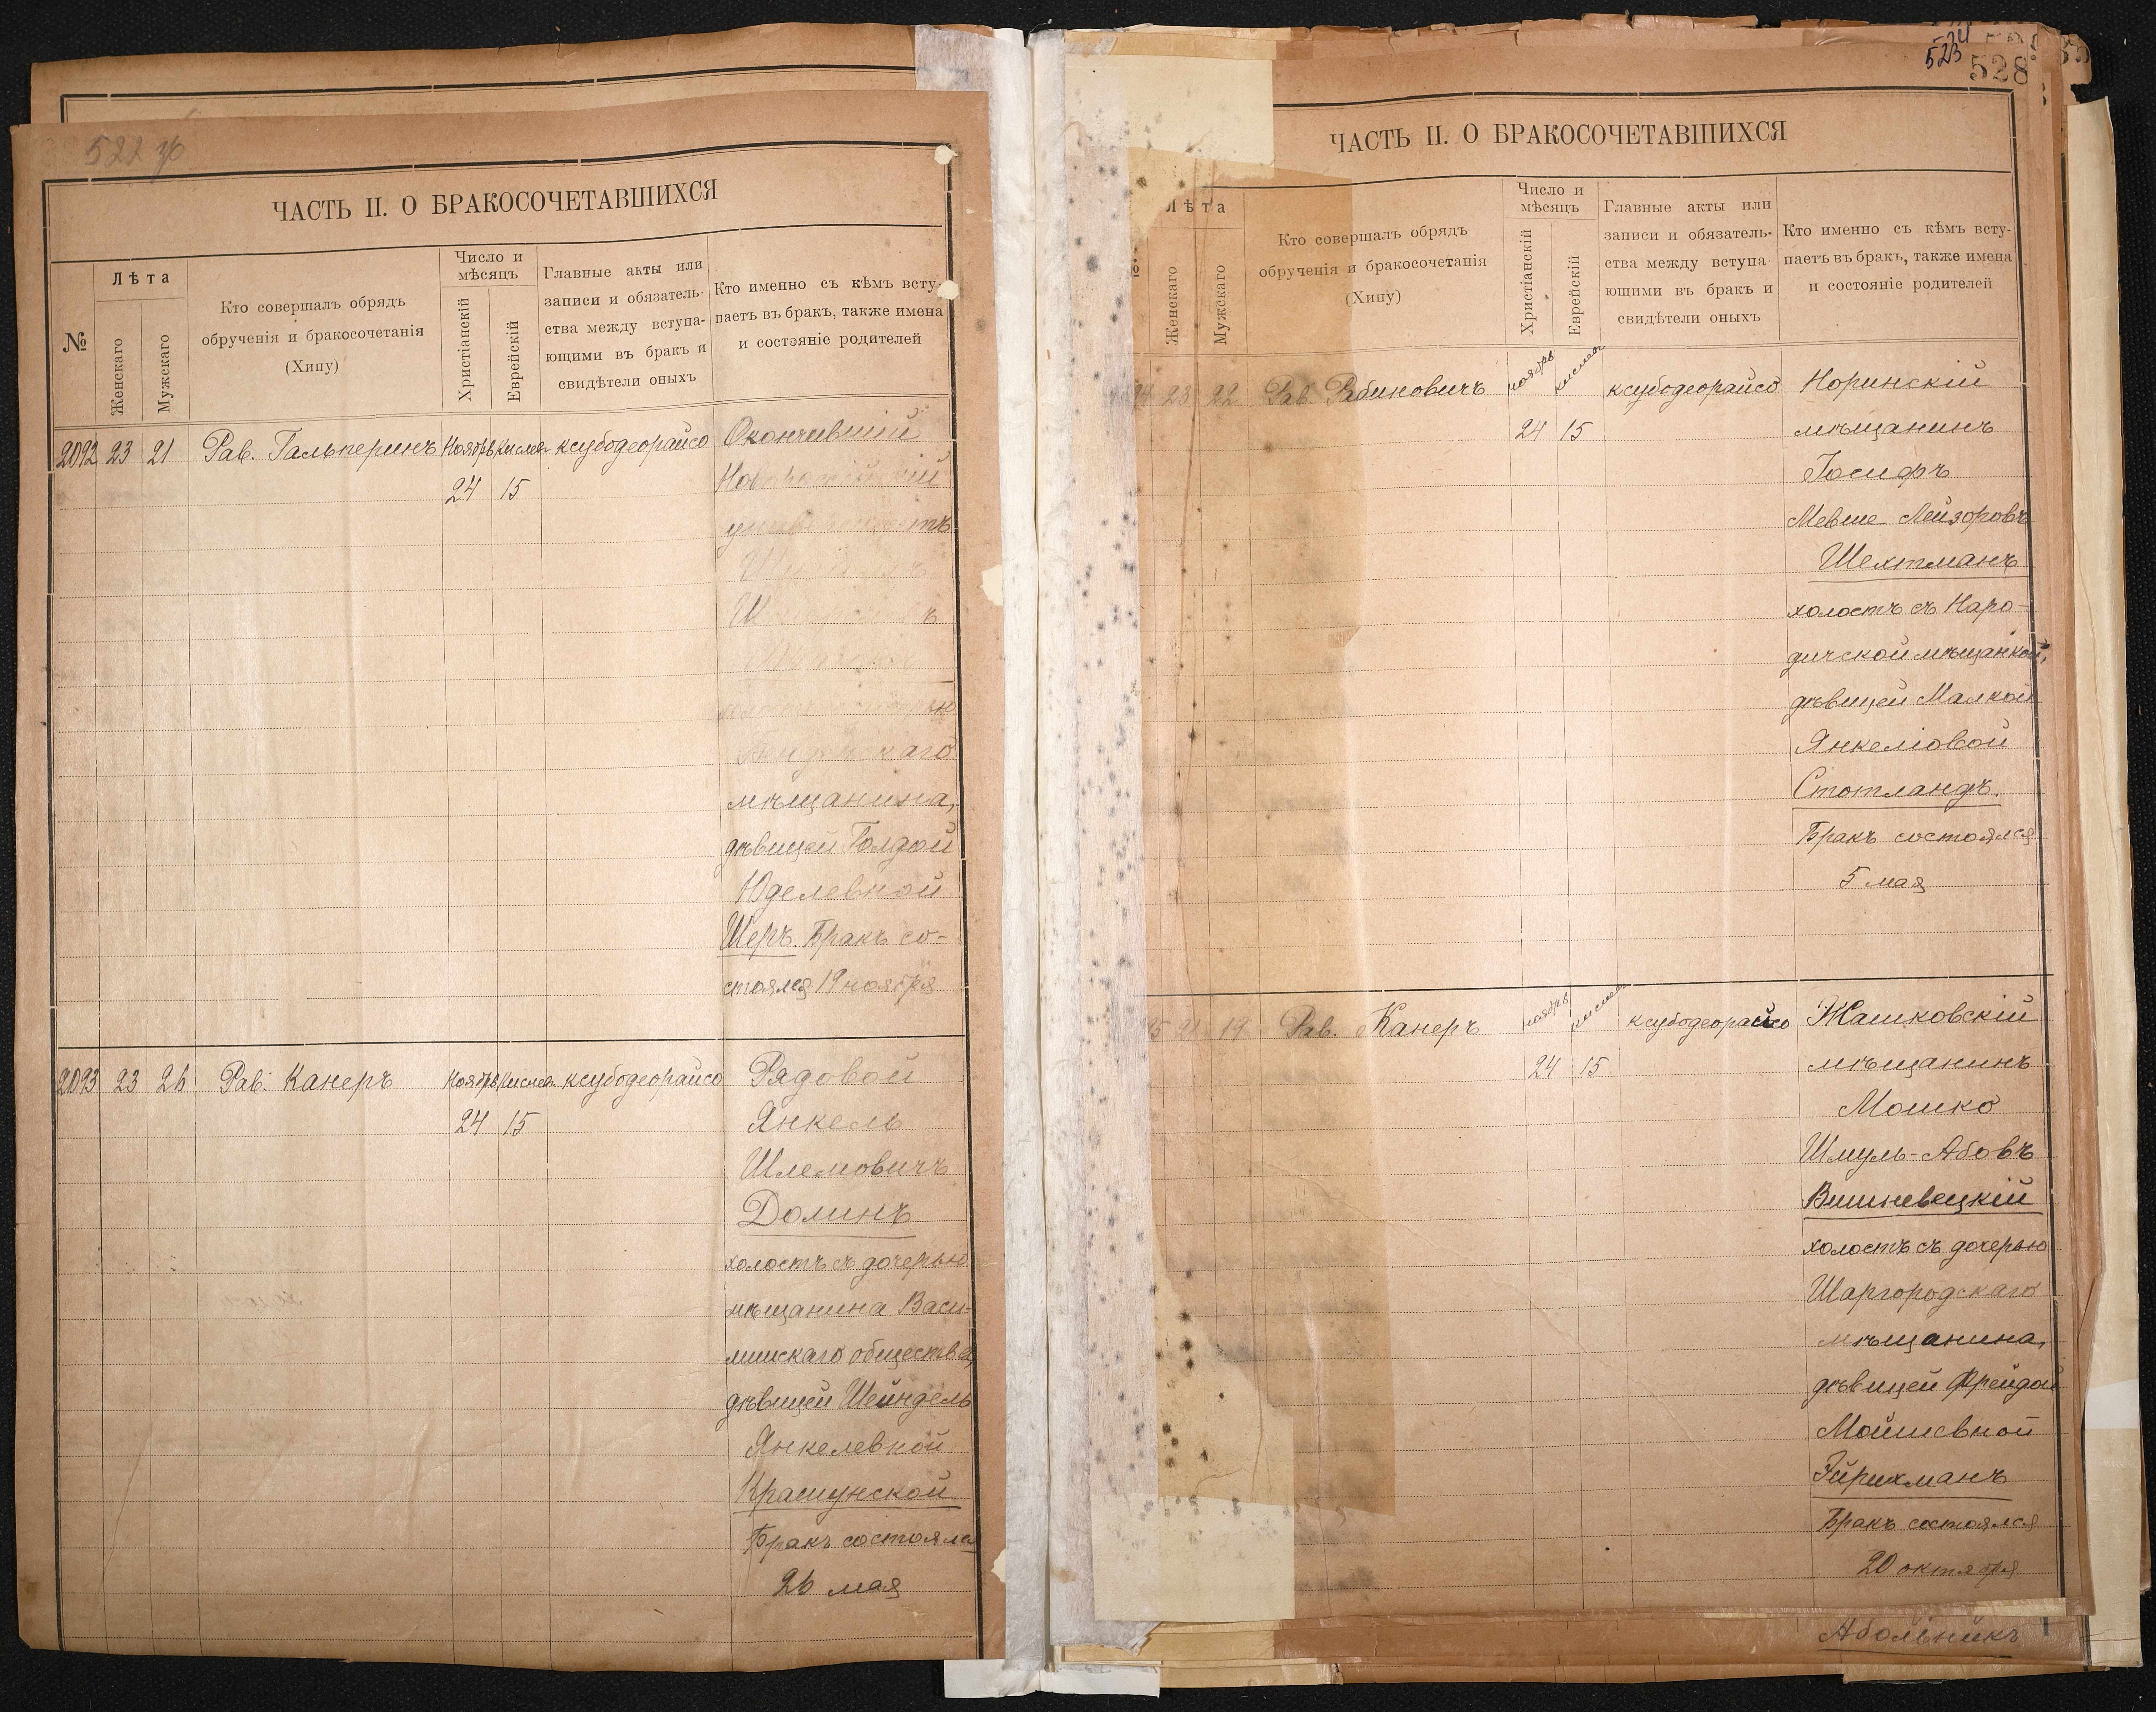 522 зв
ЧАСТЬ II. О БРАКОСОЧЕТАВШИХСЯ
№
Лѣта
Женскаго
Мужскаго
Кто совершалъ обрядъ
обрученія и бракосочетанія
(Хипу)
Число и
мѣсяцъ
Христіанскій
Еврейскій
Главные акты или
записи и обязатель-
ства между вступа-
ющими въ бракъ и
свидѣтели оныхъ
Кто именно съ кѣмъ всту-
паетъ въ бракъ, также имена
и состояніе родителей
2092 23 21 Рав. Гальперинъ Ноябрь Кислев ксубодеорайсо Окончившій
24 15
мѣщанина,
дѣвицей Голдой
Юделевной
Шеръ. Бракъ со-
стоялся 19 ноября
2093 23 26 Рав. Канеръ Ноябрь Кислев. ксубодеорайсо Рядовой
24 15 Янкель
Шлемовичъ
Долинъ
холостъ съ дочерью
мѣщанина Васи-
лишскаго общества,
дѣвицей Шейндель
Янкелевной
Крашунской
Бракъ состоялся
26 мая
523
528
ЧАСТЬ II. О БРАКОСОЧЕТАВШИХСЯ
Лѣта
Женскаго
Мужскаго
Кто совершалъ обрядъ
обрученія и бракосочетанія
(Хипу)
Число и
мѣсяцъ
Христіанскій
Еврейскій
Главные акты или
записи и обязатель-
ства между вступа-
ющими въ бракъ и
свидѣтели оныхъ
Кто именно съ кѣмъ всту-
паетъ въ бракъ, также имена
и состояніе родителей
23 22 Рав. Рабиновичъ ноябрь кислев ксубодеорайсо Норинскій
24 15 мѣщанинъ
Іосифъ
Мевше Лейзоровъ
Шехтманъ
холостъ съ Наро-
дичской мѣщанкой,
дѣвицей Малкой
Янкеліовой
Стотландъ.
Бракъ состоялся
5 мая
21 19 Рав. Канеръ ноябрь кислев ксубодеорайсо Жашковскій
24 15 мѣщанинъ
Мошко
Шмуль-Абовъ
Вишневецкій
холостъ съ дочерью
Шаргородскаго
мѣщанина,
дѣвицей Фрейдой
Мойшевной
Эйрихманъ
Бракъ состоялся
20 октября
Абольникъ